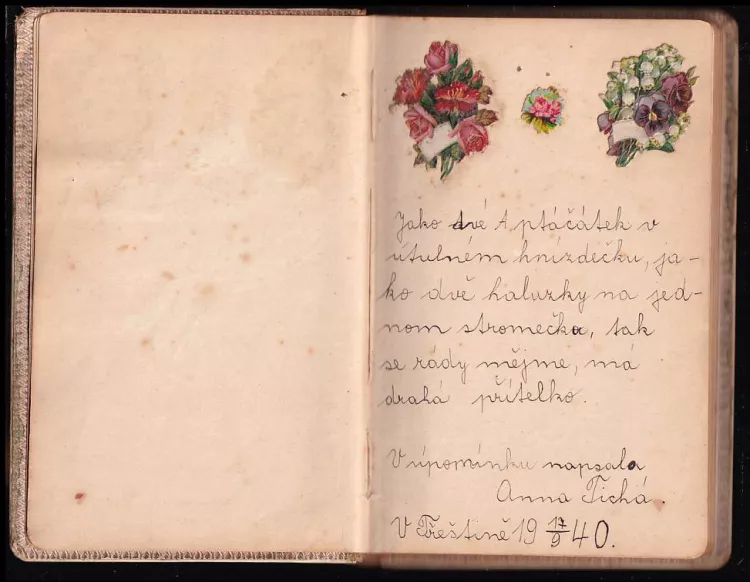 Jako dvé ptáčátek v
útulném hnízdečku, ja-
ko dvě haluzky na jed-
nom stromečku, tak
se rády mějme, má
drahá přítelko.
V úpomínku napsala
Anna Tichá.
V Třeštině 19 17/9 40.